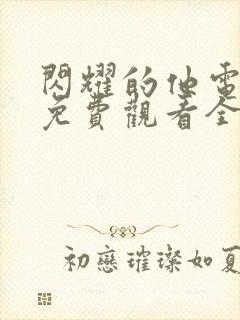 閃耀的他電
免費觀看全
初戀璀璨如夏